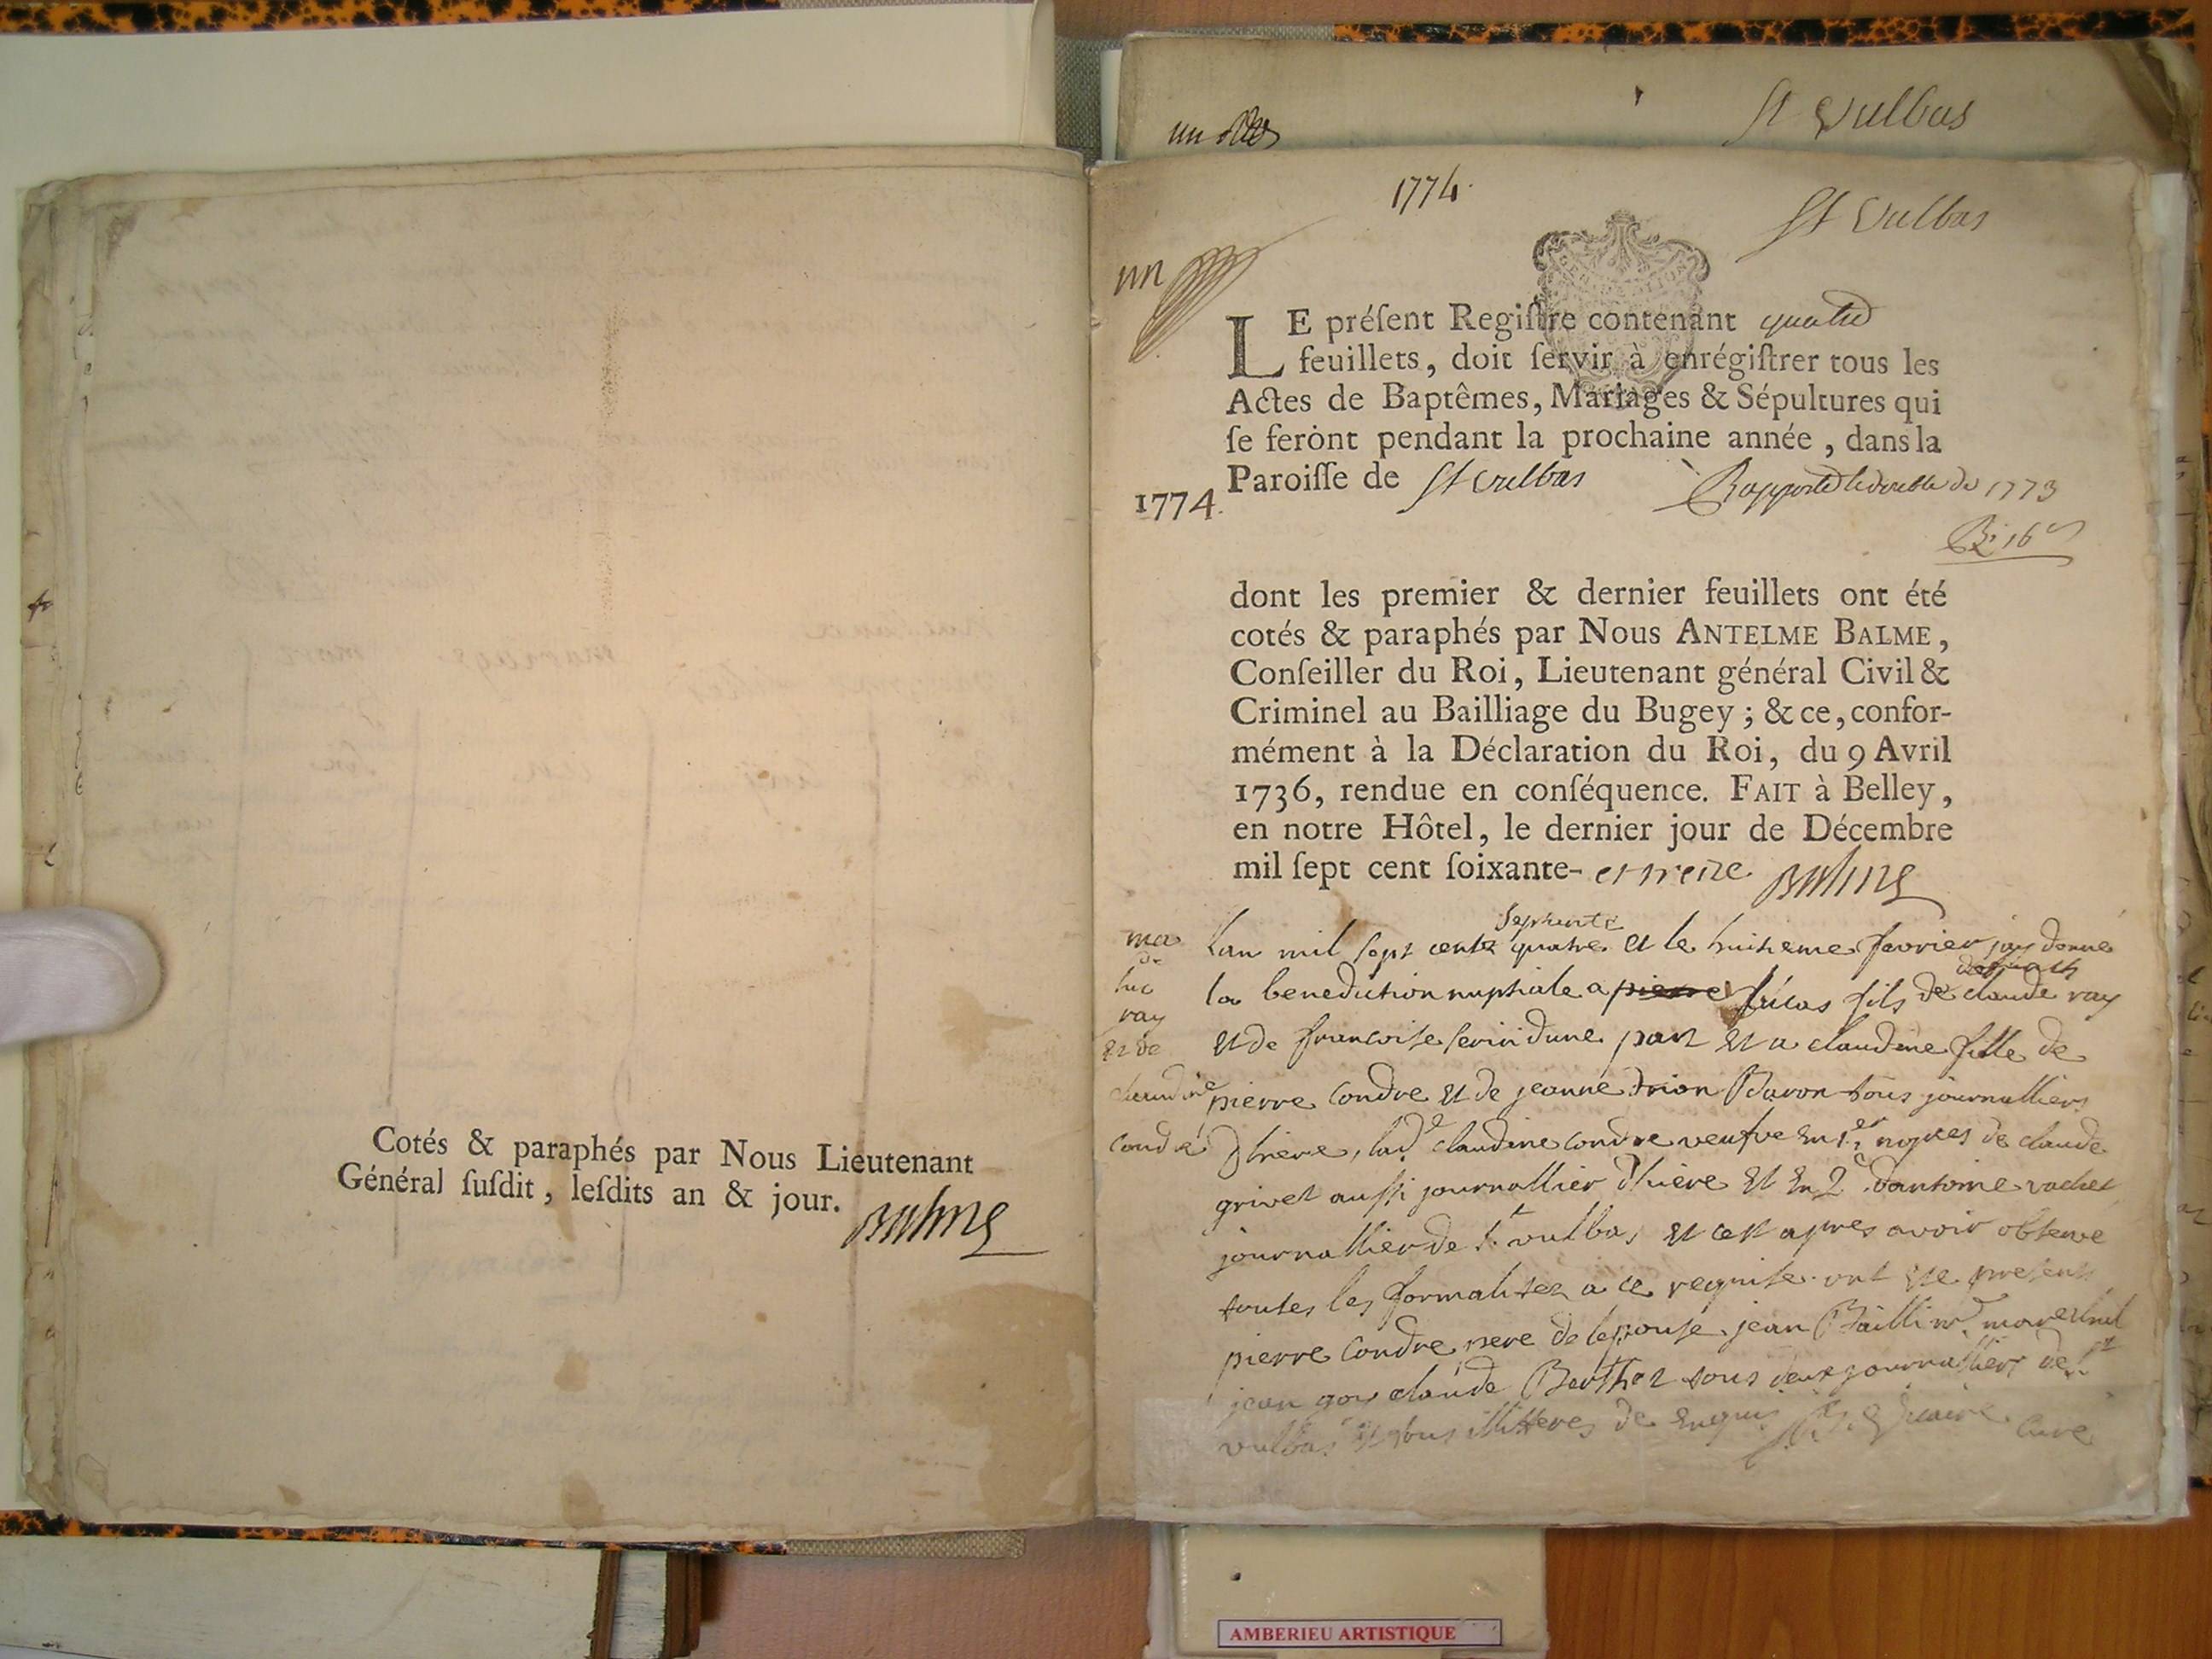 Cotés & paraphés par Nous Lieutenant
Général ſuſdit, leſdits an & jour. Balme
St Vulbas
1774.
St Vulbas
un
LE préſent Regiſtre contenant quatre
feuillets, doit ſervir à enrégiſtrer tous les
Actes de Baptêmes, Mariages & Sépultures qui
ſe feront pendant la prochaine année, dans la
Paroiſſe de St Vulbas Rapporté le double de 1773
1774.
dont les premier & dernier feuillets ont été
cotés & paraphés par Nous ANTELME BALME,
Conſeiller du Roi, Lieutenant général Civil &
Criminel au Bailliage du Bugey ; & ce, confor-
mément à la Déclaration du Roi, du 9 Avril
1736, rendue en conſéquence. FAIT à Belley,
en notre Hôtel, le dernier jour de Décembre
mil ſept cent ſoixante- et treize Balme
ma
de
luc
ray
et de
claudine
condre
septente
lan mil sept cents quatre et le huitieme fevrier jay donne
la benediction nuptiale a pierre lucas fils de claude ray
et de francoise dune part et a claudine fille de
pierre Condre et de jeanne drion Baron tous journalliers
dhiere, lad.e claudine condre veufve en 1.er nopces de claude
grivet aussi journallier dhiere et en 2.e dantoine vachet
journallier de St vulbas et cest apres avoir observe
toutes les formalitez a ce requise. ont ete present
pierre Condre pere de lepouse jean Baillin marechal
jean goy claude Berthet tous deux journalliers de St
vulbas et tous illitteres de enquis curé
AMBERIEU ARTISTIQUE